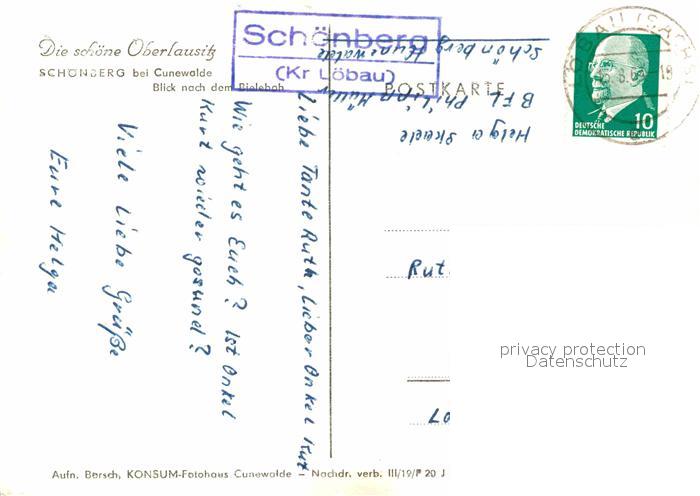 Die schöne Oberlausitz
SCHÖNBERG bei Cunewalde
Blick nach dem Bieleboh
Schönberg
(Kr Löbau)
POSTKARTE
DEUTSCHE
DEMOKRATISCHE REPUBLIK
10
LÖBAU (SACHS)
Helga
BFL Philipp Müller
Schönberg Kunewalde
Liebe Tante Ruth, Lieber Onkel Kurt
Wie geht es Euch? Ist Onkel
Kurt wieder gesund?
Viele Liebe Grüße
Eure Helga
Rut
privacy protection
Datenschutz
Aufn. Bersch, KONSUM-Fotohaus Cunewalde – Nachdr. verb. III/19/P 20 J